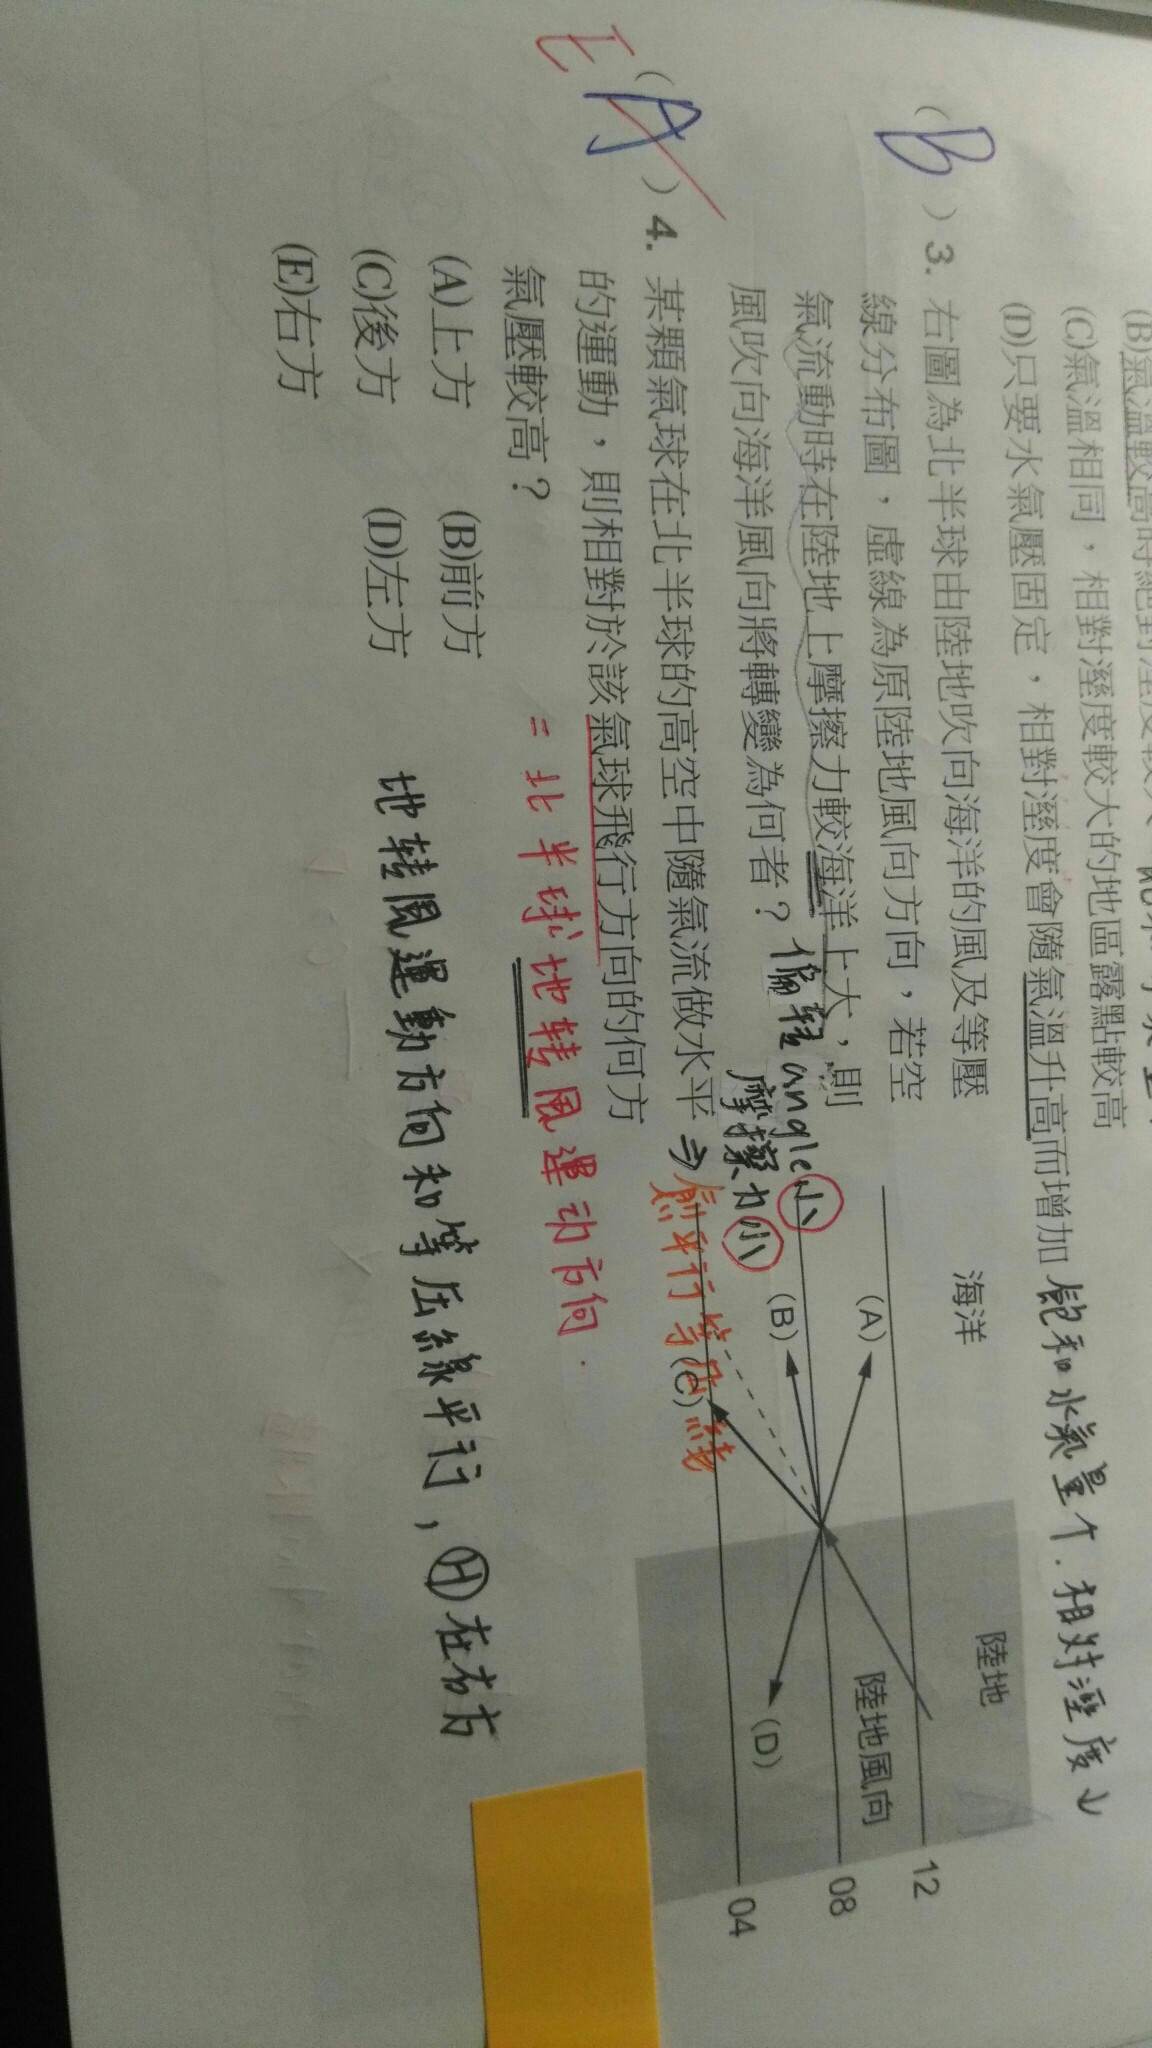 (B)氣溫較高時絕對溼度較大
(C)氣溫相同，相對溼度較大的地區露點較高
(D)只要水氣壓固定，相對溼度會隨氣溫升高而增加 飽和水氣量个.相對溼度↓
(B)3.右圖為北半球由陸地吹向海洋的風及等壓
線分布圖，虛線為原陸地風向方向，若空
氣流動時在陸地上摩擦力較海洋上大，則
風吹向海洋風向將轉變為何者？
偏轉angle小
摩擦力小
平行等压綫
海洋
陸地
陸地風向
(A)
(B)
(C)
(D)
12
08
04
E
(A)4.某顆氣球在北半球的高空中隨氣流做水平
的運動，則相對於該氣球飛行方向的何方
氣壓較高？
=北半球地转風運动方向.
(A)上方 (B)前方
(C)後方 (D)左方
(E)右方
地转風運動方向和等压線平行，H在右方